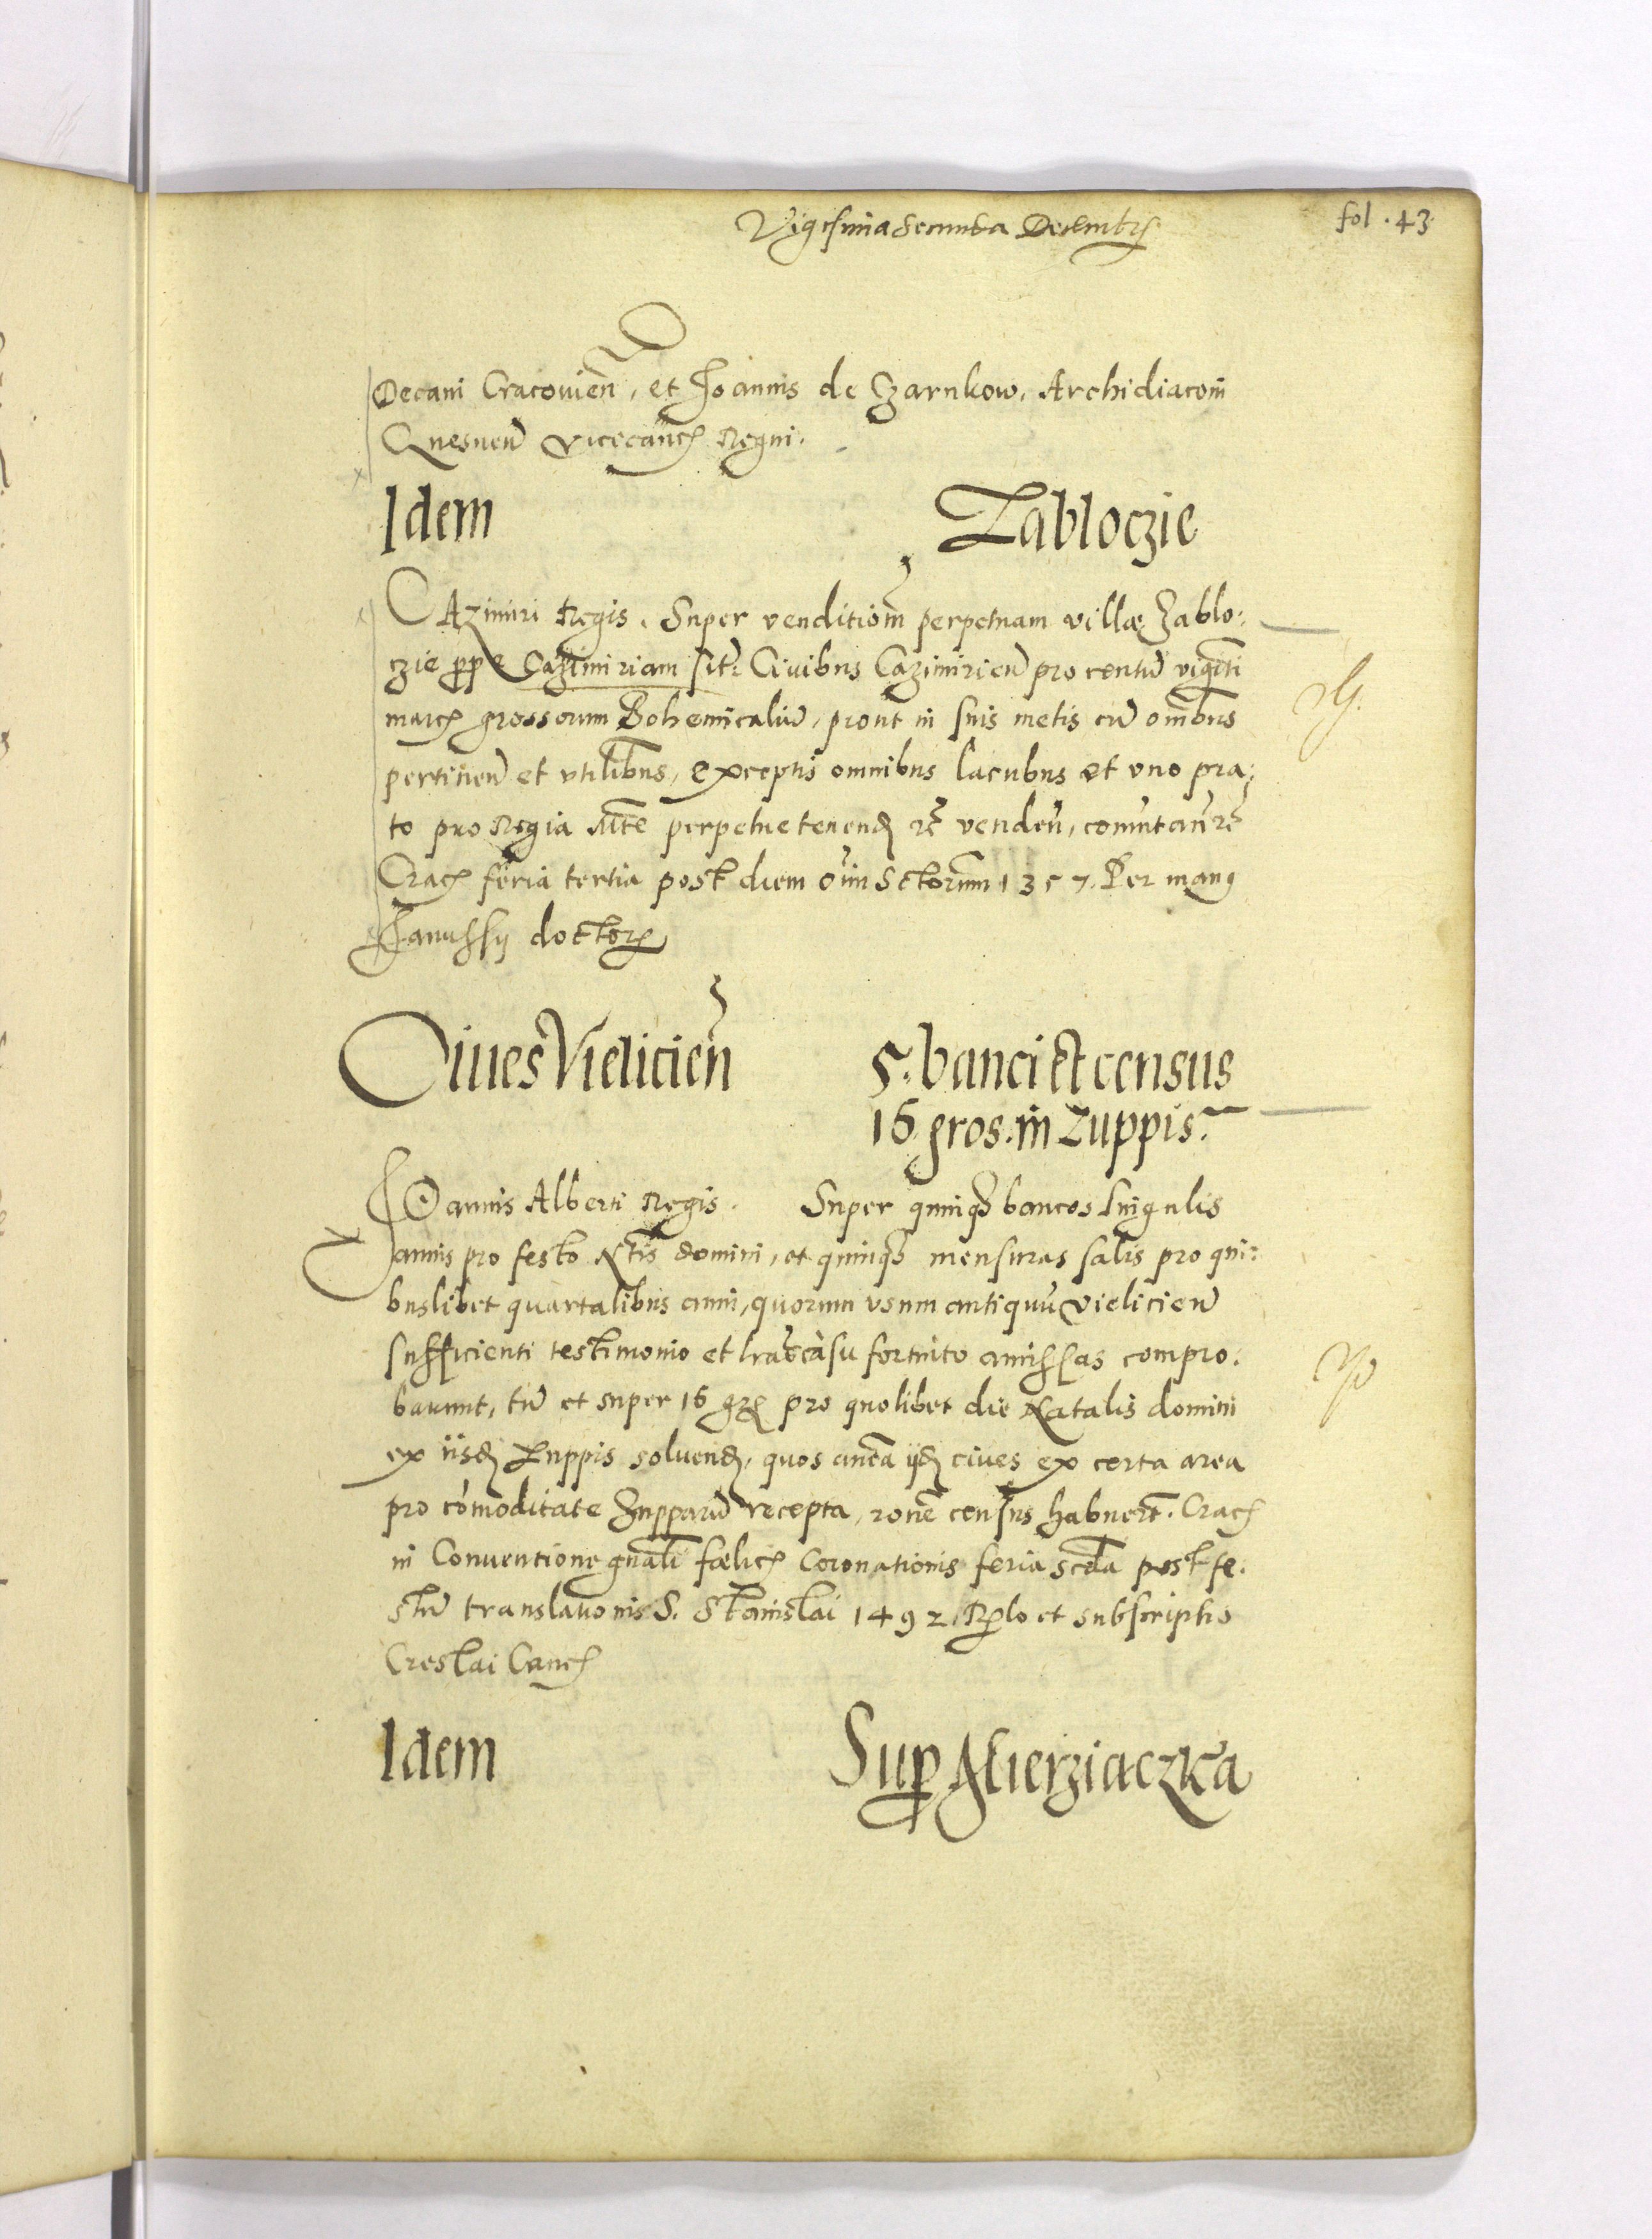 Vigesima Secunda Decembris
fol. 43
Decani Cracouien̄, et Joannis de Czarnkow, Archidiaconi
Gnesnen̄ vicecanc̄ Regni.
Idem Zabloczie
CAzimiri Regis. Super venditiom̄ perpetuam villæ Zablo:
czie prope Cazimiriam sit: Ciuibus Cazimirien̄ pro centū viginti
marc̄ grossorum Bohemicaliū, prout in suis metis cū om̄bus
pertinen̄ et vtilibus, exceptis omnibus lacubus et vno pra:
to pro Regia Mte perpetue tenend̄ etc̄ venden̄, com̄utan̄ etc̄
Crac̄ feria tertia post diem om̄i Sctorum 1357. Per manus
Janussij doctoris
Ciues Vielicien̄ 5. banci et census
16 gros. in Zuppis.
JOannis Alberti Regis. Super quinque bancos singulis
annis pro festo Ntis domini, et quinque mensuras salis pro qui:
buslibet quartalibus anni, quorum vsum antiquū Vielicien̄
sufficienti testimonio et lrās casu fortuito amissas compro:
barunt, tū et super 16 gros pro quolibet die Natalis domini
ex iisd̄ Zuppis soluend̄, quos antea ijd̄ ciues ex certa area
pro com̄oditate Zupparū recepta, rone census habuert. Crac̄
in Conuentione gnali fœlic̄ Coronationis feria scda post fe.
stū translationis S. Stanislai 1492. Relo et subscriptio
Creslai Canc̄
Idem Super Mierziaczka